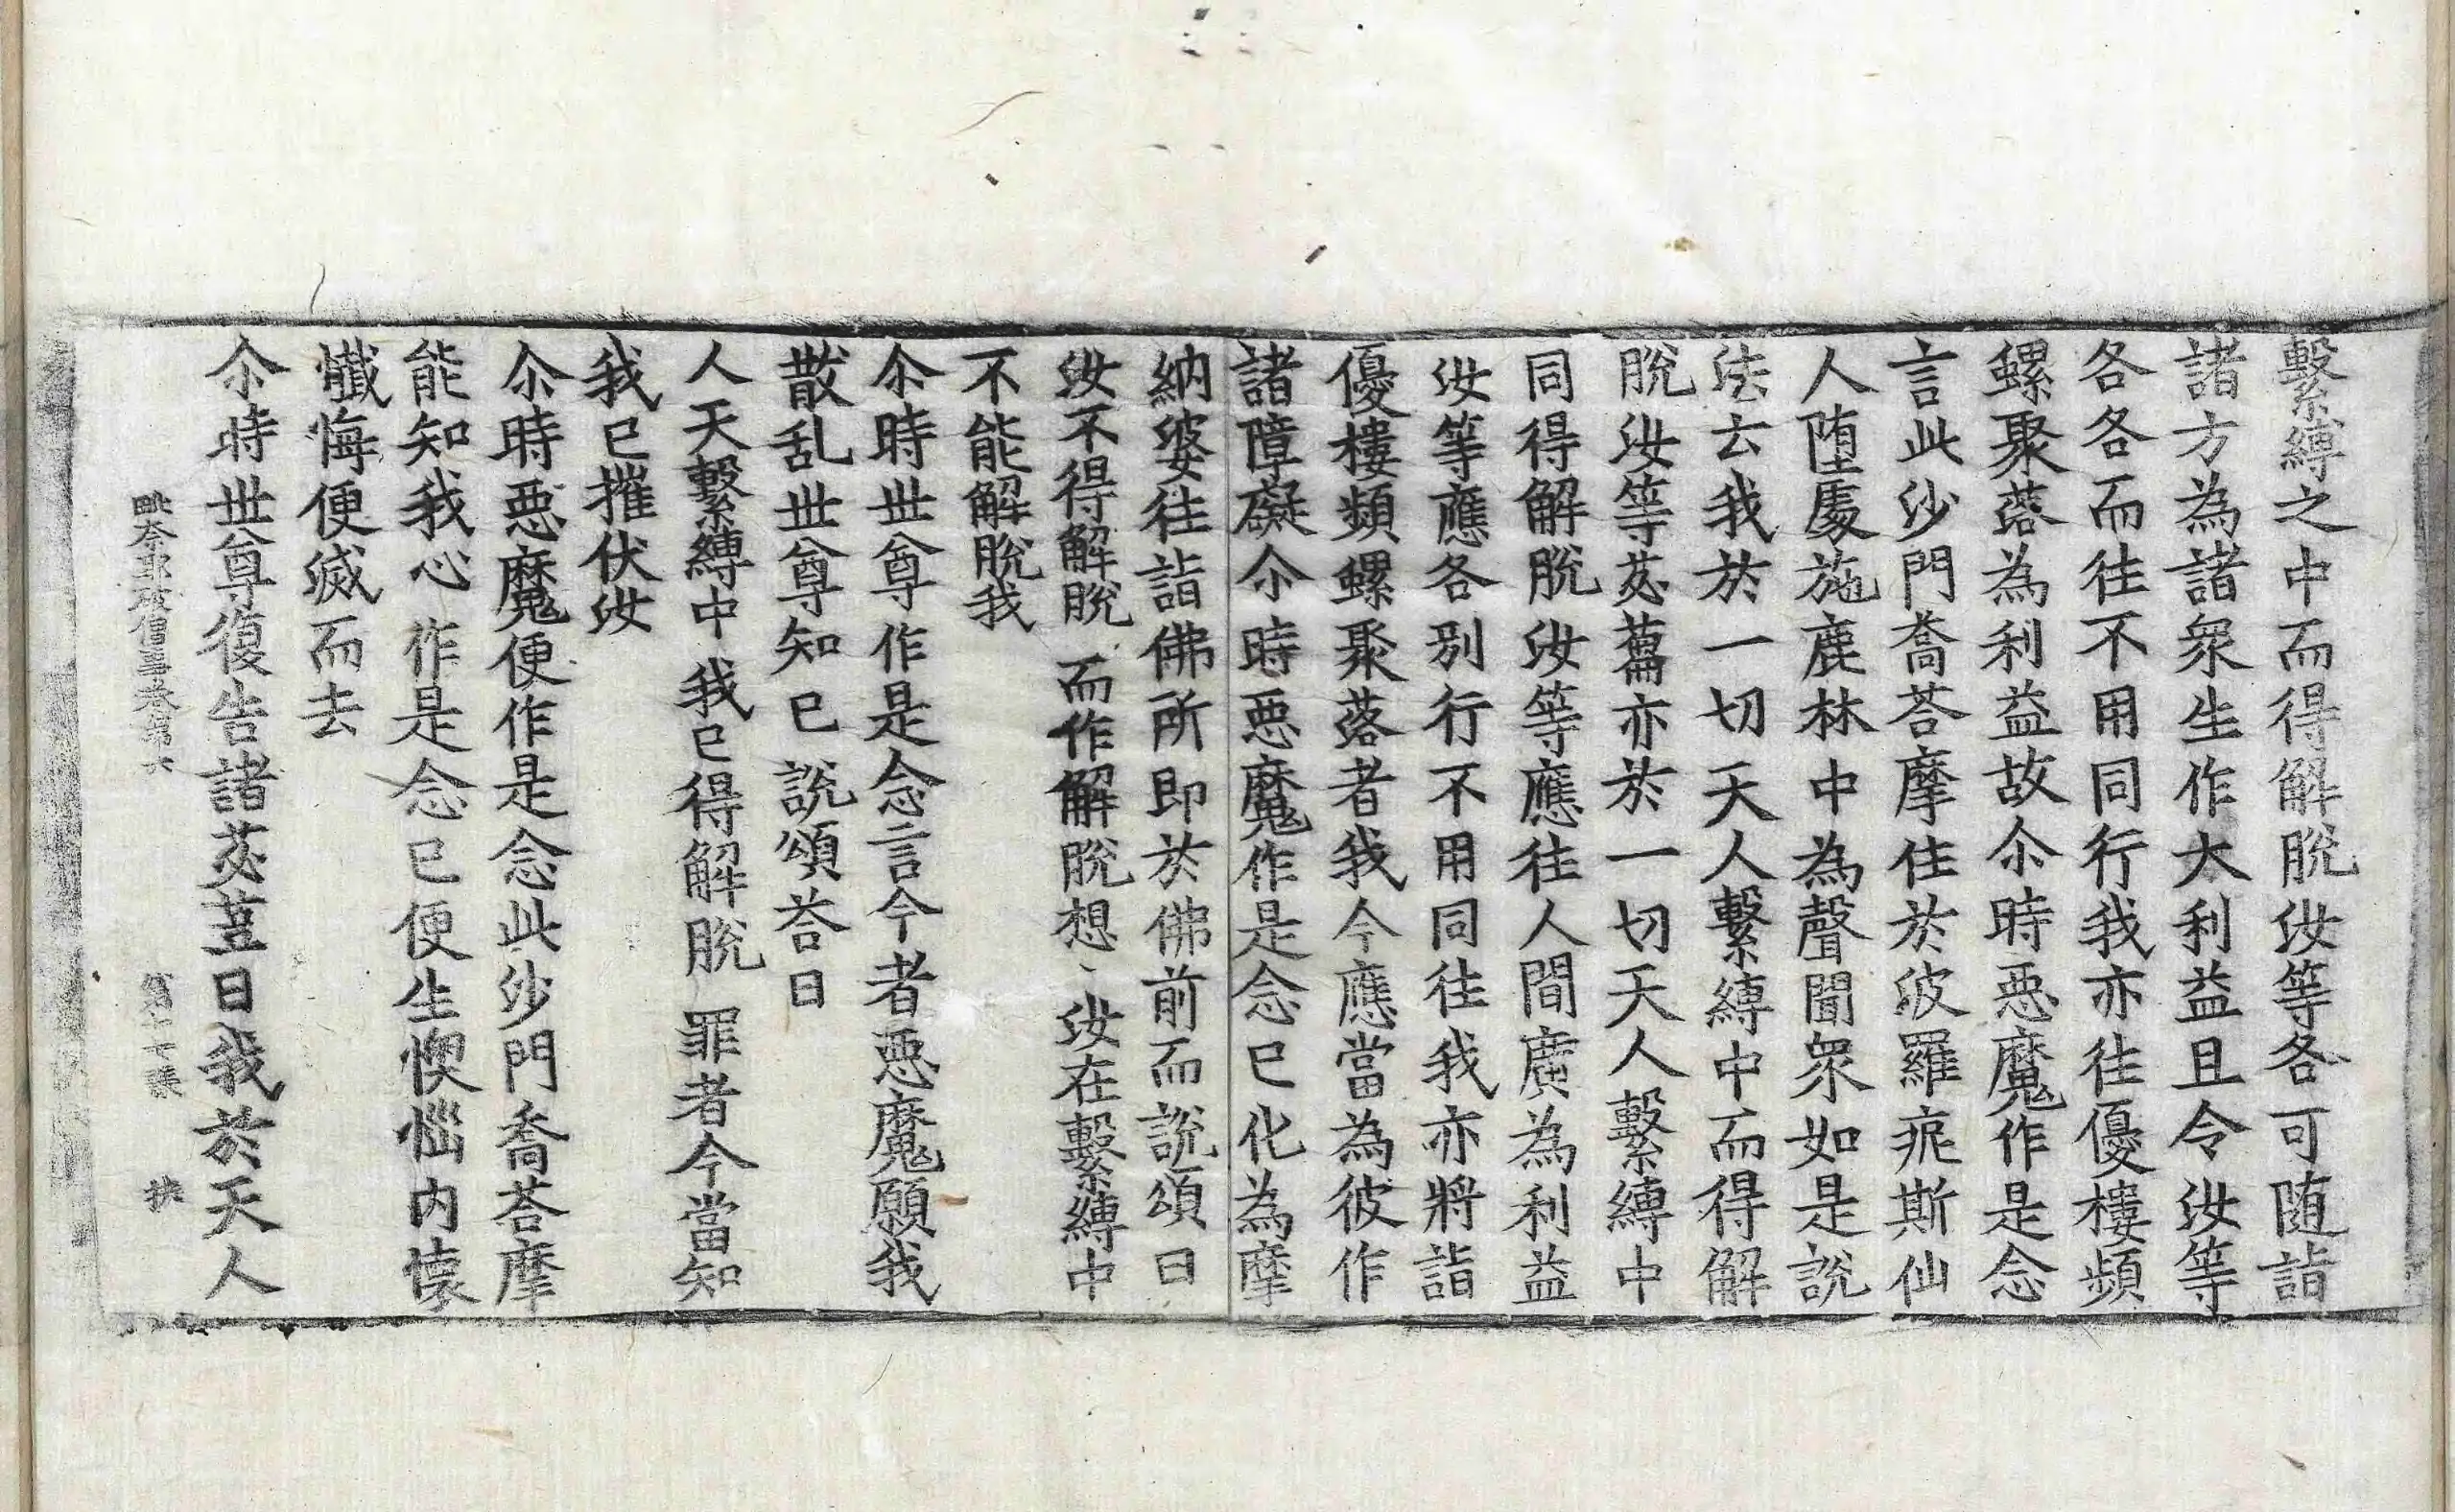 繫縛之中而得解脫汝等各可随詣
諸方為諸衆生作大利益且令汝等
各各而往不用同行我亦往優樓頻
螺聚落為利益故尒時惡魔作是念
言此沙門喬荅摩住於波羅痆斯仙
人堕處施鹿林中為聲聞衆如是說
法云我於一切天人繫縛中而得解
脫汝等苾蒭亦於一切天人繫縛中
同得解脫汝等應往人間廣為利益
汝等應各別行不用同往我亦將詣
優樓頻螺聚落者我今應當為彼作
諸障礙尒時惡魔作是念已化為摩
納婆往詣佛所即於佛前而說頌曰
汝不得解脫 而作解脫想 汝在繫縛中
不能解脫我
尒時世尊作是念言今者惡魔願我
散乱世尊知已說頌荅曰
人天繫縛中 我已得解脫 罪者今當知
我已摧伏汝
尒時惡魔便作是念此沙門喬荅摩
能知我心作是念已便生懊惱内懐
懺悔便滅而去
尒時世尊復告諸苾蒭曰我於天人
毗奈耶破僧事卷第六 第十張